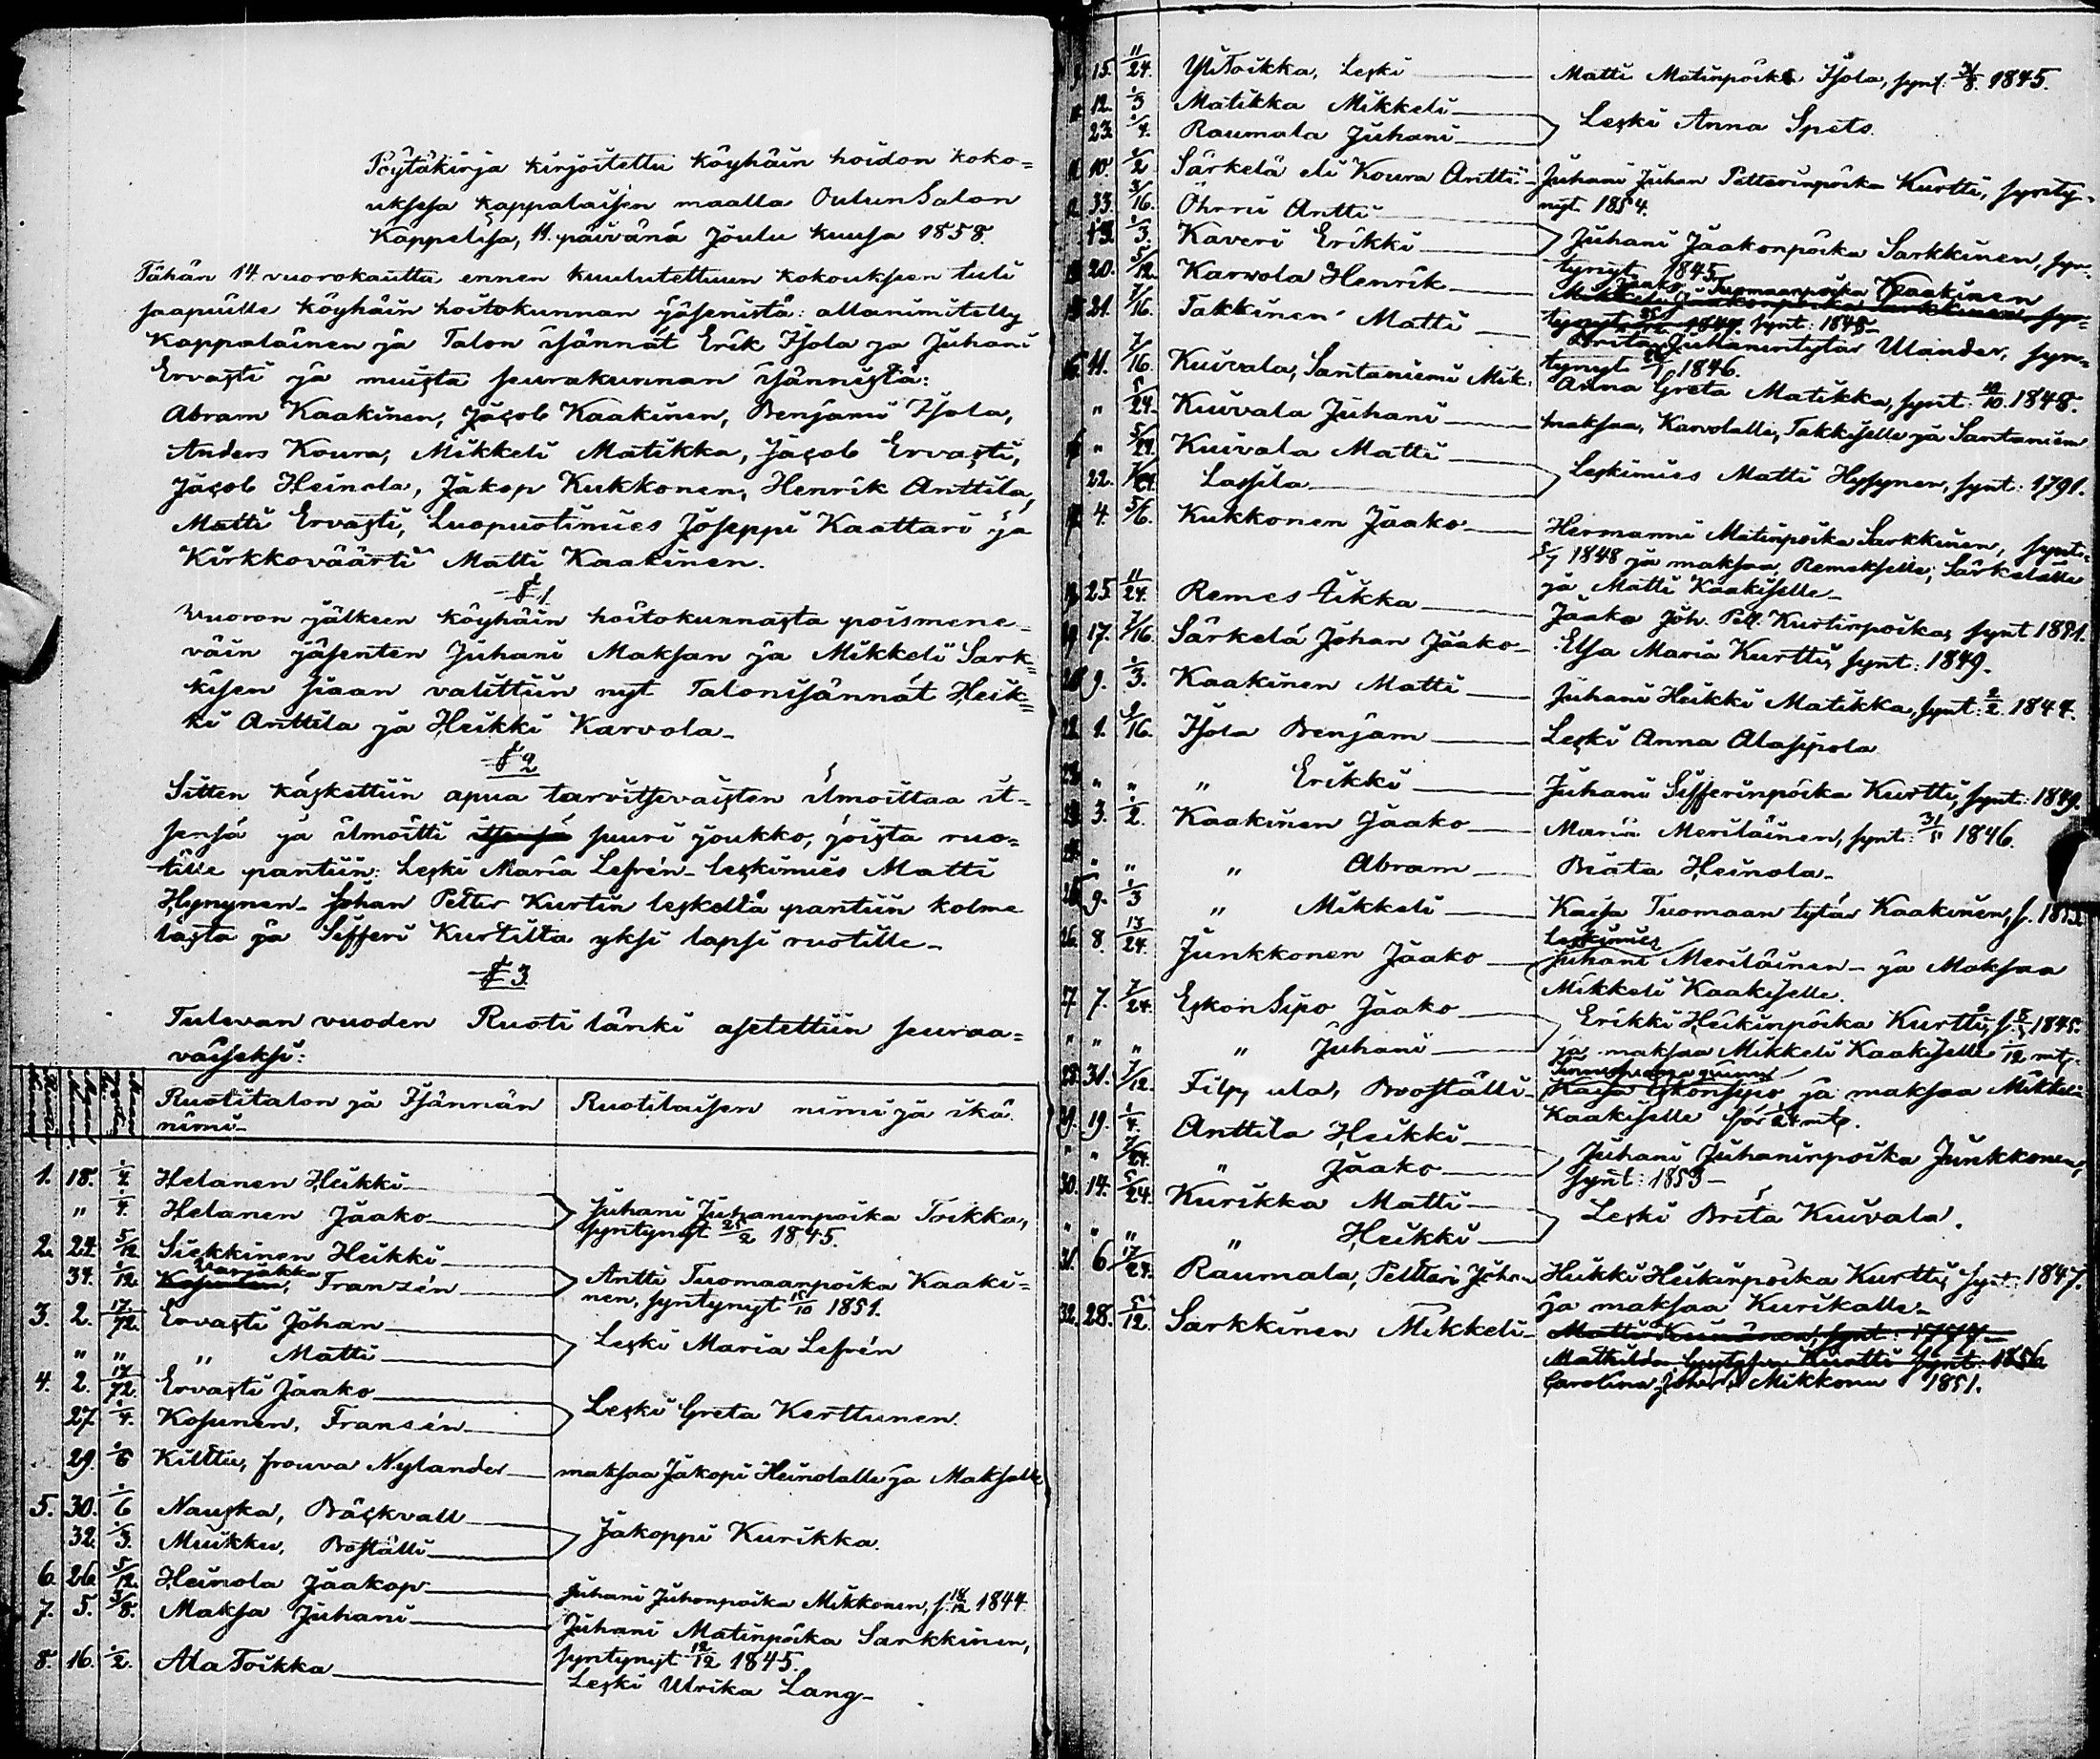 Pöytäkirja kirjoitettu köyhäin hoidon koko=
uksessa kappalaisen maalla OulunSalon
Kappelisa, 11. päivänä Joulu kuusa 1858.
Tähän 14 vuorokautta ennen kuulutettuun kokouksen tuli
saapuille köyhäin hoitokunnan jäsenistä: allanimitetty
Kappalainen ja Talon isännät Erik Isola ja Juhani
Ervasti ja muista seurakunnan isännistä:
Abram Kaakinen, Jacob Kaakinen, Benjami Isola,
Anders Koura, Mikkeli Matikka, Jacob Ervasti,
Jacob Heinola, Jakop Kukkonen, Henrik Anttila,
Matti Ervasti, Luopuotimies Joseppi Kaattari ja
Kirkkoväärti Matti Kaakinen.
§ 1
Vuoron jälkeen köyhäin hoitokunnasta poismene=
väin jäsenten Juhani Maksan ja Mikkeli Sark=
kisen siaan valittiin nyt Talonisännät Heik=
ki Anttila ja Heikki Karvola.
§ 2
Sitten käskettiin apua tarvitsevaisten ilmoittaa it=
sensä ja ilmoitti itsensä suuri joukko, joista ruo=
tille pantiin: Leski Maria Lefrén. leskimies Matti
Hynynen. Johan Petter Kurtin leskeltä pantiin kolme
lasta ja Sifferi Kurtilta yksi lapsi ruotille.
§ 3
Tulevan vuoden Ruoti länki asetettiin seuraa=
vaiseksi:
Ruotitalon ja Isännän Ruotilaisen nimi ja ikä.
nimi.
1. 18. 1/4 Helanen Heikki
" 1/4. Helanen Jaako Juhani Juhaninpoika Toikka,
syntynyt 25/2 1845.
2. 24. 5/12 Siekkinen Heikki
34. 1/12. Varjakka, Franzén Antti Tuomaanpoika Kaaki=
nen, syntynyt 15/10 1851.
3. 2. 17/72. Ervasti Johan
" " " Matti Leski Maria Lefrén
4. 2. 17/72. Ervasti Jaako
27. 1/4. Kosunen, Fransén Leski Greta Kerttunen.
29. 1/6 Kilttu, frouva Nylander maksaa Jakopi Heinolalle ja Maksalle
5. 30. 1/6 Nauska, Bäckvall
32. 1/3. Muikku, Boställi Jakoppi Kurikka.
6. 26. 5/12. Heinola Jaakop Juhani Juhonpoika Mikkonen, s. 18/12 1844.
7. 5. 3/8. Maksa Juhani Juhani Matinpoika Sarkkinen,
syntynyt 12/12 1845.
8. 16. 1/2. AlaToikka Leski Ulrika Lang.
15. 11/24. YliToikka, Leski Matti Matinpoika Isola, synt. 1845.
12. 1/3 Matikka Mikkeli
23. 1/4. Raumala Juhani Leski Anna Spets.
10. 1/2 Särkelä eli Koura Antti Juhani Juhan Petterinpoika Kurtti, synty=
nyt 1854.
33. 3/16. Öhrni Antti
13. 1/3. Kaveri Erikki Juhani Jaakonpoika Sarkkinen, syn=
tynyt 1845.
20. 5/12. Karvola Henrik Jaako Tuomaanpoika Kaakinen
synt: 1848
21. 7/16. Takkinen Matti Brita Juhanintytär Ulander, syn=
tynyt 1846.
11. 7/16. Kuivala, Santaniemi Mik. Anna Greta Matikka, synt: 10/10. 1848.
" 5/24. Kuivala Juhani maksaa, Karvolalle, Takkiselle ja Santaniem
" 5/24. Kuivala Matti
22. Lassila Leskimies Matti Hynynen, synt: 1791.
4. 5/6. Kukkonen Jaako Hermanni Matinpoika Sarkkinen, synt:
1848 ja maksaa, Remekselle, Särkelälle
ja Matti Kaakiselle.
25 11/24. Remes Tikka Jaako Joh. Pett. Kurtinpoika, synt 1851.
17. 7/16. Särkelä Johan Jaako Elsa Maria Kurtti, synt: 1849.
9. 1/3. Kaakinen Matti Juhani Heikki Matikka, synt: 2/2. 1844.
1. 9/16. Isola Benjam Leski Anna Alasipola
" " " Erikki Juhani Sifferinpoika Kurtti, synt: 1849.
3. 1/2. Kaakinen Jaako Maria Meriläinen, synt: 31/5 1846.
" " " Abram Beata Heinola.
9. 1/3 " Mikkeli Kaisa Tuomaan tytär Kaakinen, s.
26. 8. 13/24. Junkkonen Jaako Leskimies
Juhani Meriläinen. ja Maksaa
Mikkeli Kaakiselle.
27. 7. 7/24. EskonSipo Jaako
" " " " Juhani Erikki Heikinpoika Kurtti, s. 1845.
ja maksaa Mikkeli Kaakiselle 1/12 mtl.
28. 31. 7/12. Filppula, Boställi Kaisa Eskonsipo, ja maksaa Mikkeli
Kaakiselle för 1/24 mtl.
29. 19. 1/4. Anttila Heikki
" " 7/24. " Jaako Juhani Juhaninpoika Junkkonen,
synt: 1853.
30. 14. 5/24. Kurikka Matti
" " " " Heikki Leski Brita Kuivala.
31. 6 17/24. Raumala, Petteri Johan Heikki Heikinpoika Kurtti, synt: 1847.
ja maksaa Kurikalle.
32. 28. 5/12. Sarkkinen Mikkeli
Mathilda Gustafva Kurtti synt: 1856
Carolina Johan: Mikkonen 1851.